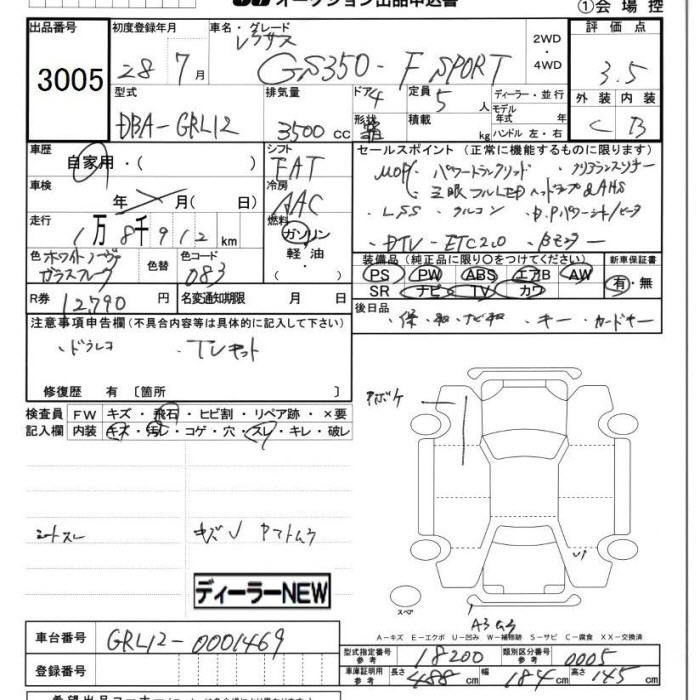 オークション出品申込書
①会場控
出品番号 初度登録年月 車名・グレード レクサス 2WD・4WD 評価点
3005 28年 7月 GS350-F SPORT 3.5
型式 排気量 ドア 4 定員 5人 ディーラー・並行 外装 内装
DBA-GRL12 3500cc 形状 積載 kg モデル年式 年式 ハンドル 左・右 C B
車歴 自家用・( ) シフト FAT セールスポイント(正常に機能するものに限ります)
車検 年 月( 日) 冷房 AAC MOP パワートランクリッド ・クリアランスソナー
三眼フルLEDヘッドランプ&AHS
走行 1万8千912km 燃料 ガソリン・軽油・( ) ・LSS ・クルコン
・DTV ・ETC2.0 ・Bモニター
色 ホワイトノーヴァ ガラスフレーク 色替 色コード 083 装備品(純正品に限り○をつけてください) 新車保証書
PS PW ABS エアB AW 有・無
SR ナビ TV カワ
R券 12,790円 名変通知期限 月 日 後日品
・保 ・取 ・ナビ取 ・キー ・カードキー
注意事項申告欄(不具合内容等は具体的に記入して下さい)
・ドラレコ ・TVキット
修復歴 有 〔箇所 〕
検査員 FW キズ・飛石・ヒビ割・リペア跡・×要
記入欄 内装 キズ・汚レ・コゲ・穴・スレ・キレ・破レ
シートスレ キズ
ディーラーNEW
スペア
A-キズ E-エクボ U-凹み W-補修跡 S-サビ C-腐食 XX-交換済
車台番号 GRL12-0001469
型式指定番号 参考 18200 類別区分番号 参考 0005
登録番号 車庫証明用 参考 長さ 488cm 幅 184cm 高さ 145cm